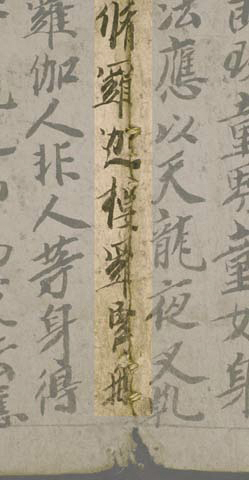 童男童女身
法應以天龍夜叉乹
脩羅迦樓羅緊那
羅伽人非人等身得